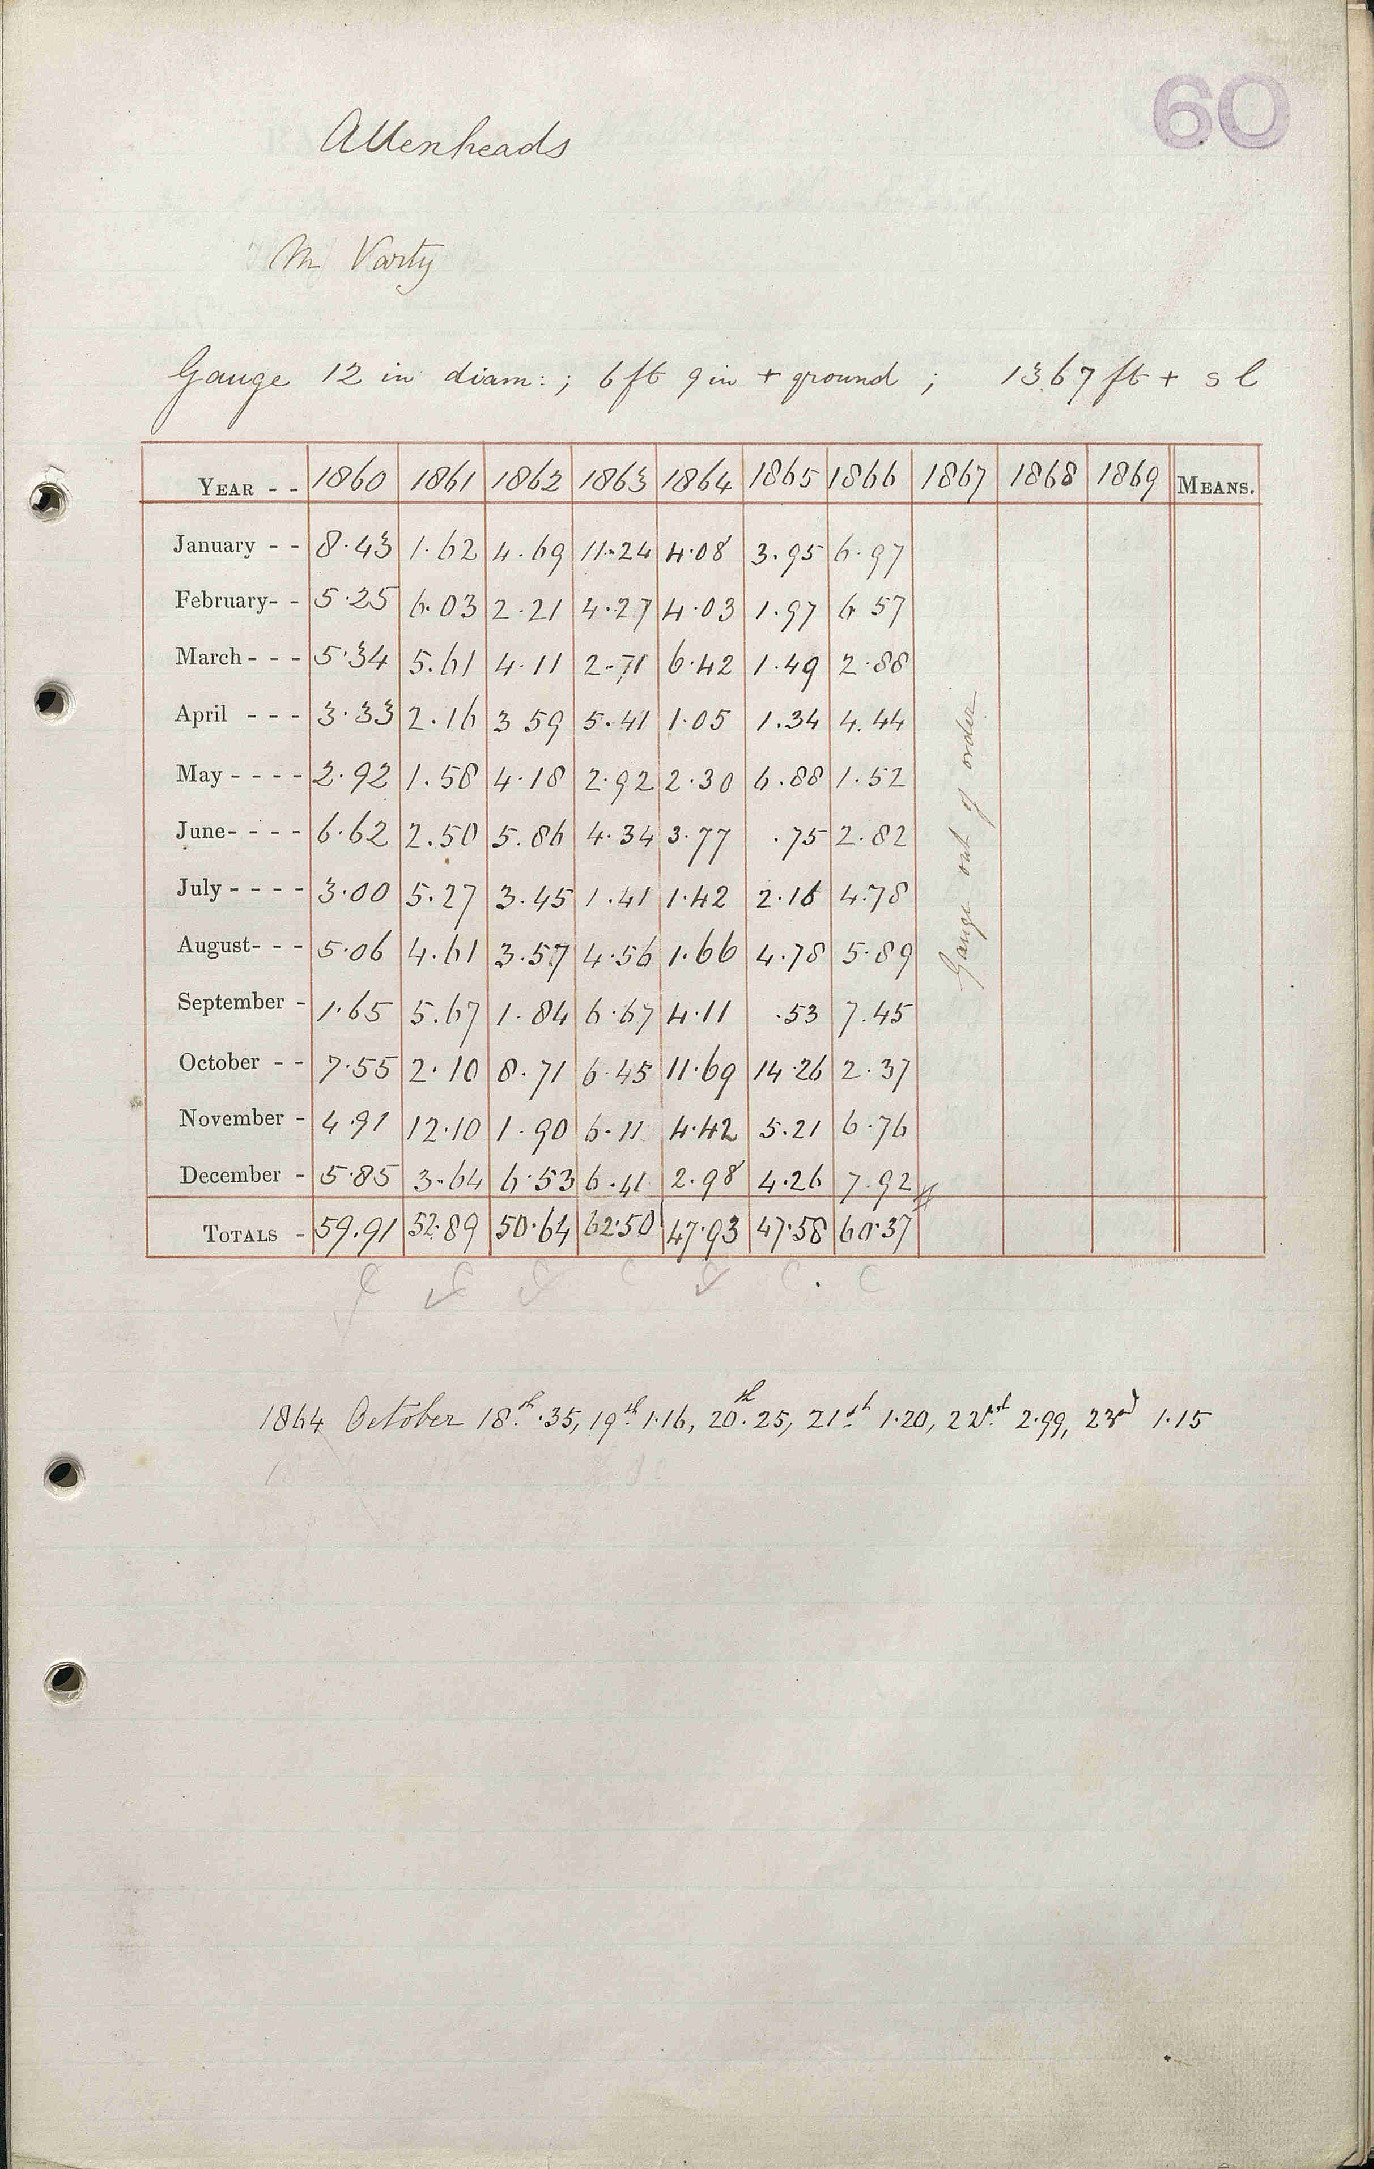 60
Allenheads
Mr Varty
Gauge 12 in diam: ; 6 ft 9 in + ground ; 1367 ft + s l
YEAR - - 1860 1861 1862 1863 1864 1865 1866 1867 1868 1869 MEANS.
January - - 8.43 1.62 4.69 11.24 4.08 3.95 6.97
February- - 5.25 6.03 2.21 4.27 4.03 1.97 6 57
March - - - 5.34 5.61 4.11 2.71 6.42 1.49 2.88
April - - - 3.33 2.16 3 59 5.41 1.05 1.34 4.44
May - - - - 2.92 1.58 4.18 2.92 2.30 6.88 1.52
June- - - - 6.62 2.50 5.86 4.34 3.77 .75 2.82
July - - - - 3.00 5.27 3.45 1.41 1.42 2.16 4.78
August- - - 5.06 4.61 3.57 4.56 1.66 4.78 5.89
September - 1.65 5.67 1.84 6.67 4.11 .53 7.45
October - - 7.55 2.10 8.71 6.45 11.69 14.26 2.37
November - 4.91 12.10 1.90 6.11 4.42 5.21 6.76
December - 5.85 3.64 6.53 6.41 2.98 4.26 7.92
TOTALS - 59.91 52.89 50.64 62.50 47.93 47.58 60.37
Gauge out of order
1864 October 18th .35, 19th 1.16, 20th .25, 21st 1.20, 22nd 2.99, 23rd 1.15